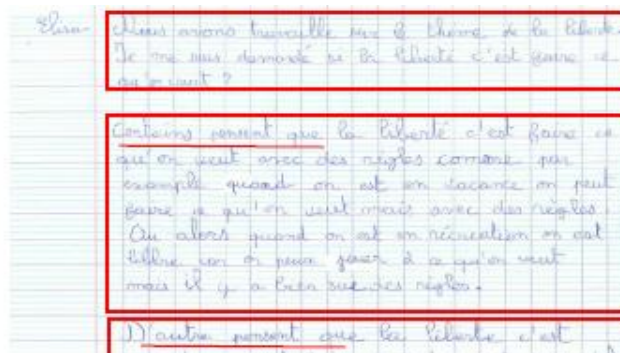 Elisa Nous avons travaillé sur le thème de la liberté.
Je me suis demandé si la liberté c'est faire ce
qu'on veut ?
Certains pensent que la liberté c'est faire ce
qu'on veut avec des règles comme par
exemple quand on est en vacance on peut
faire ce qu'on veut mais avec des règles.
Ou alors quand on est en récréation on est
libre on peux jouer à ce qu'on veut
mais il y a bien sur des règles.
D'autre pensent que la liberté c'est